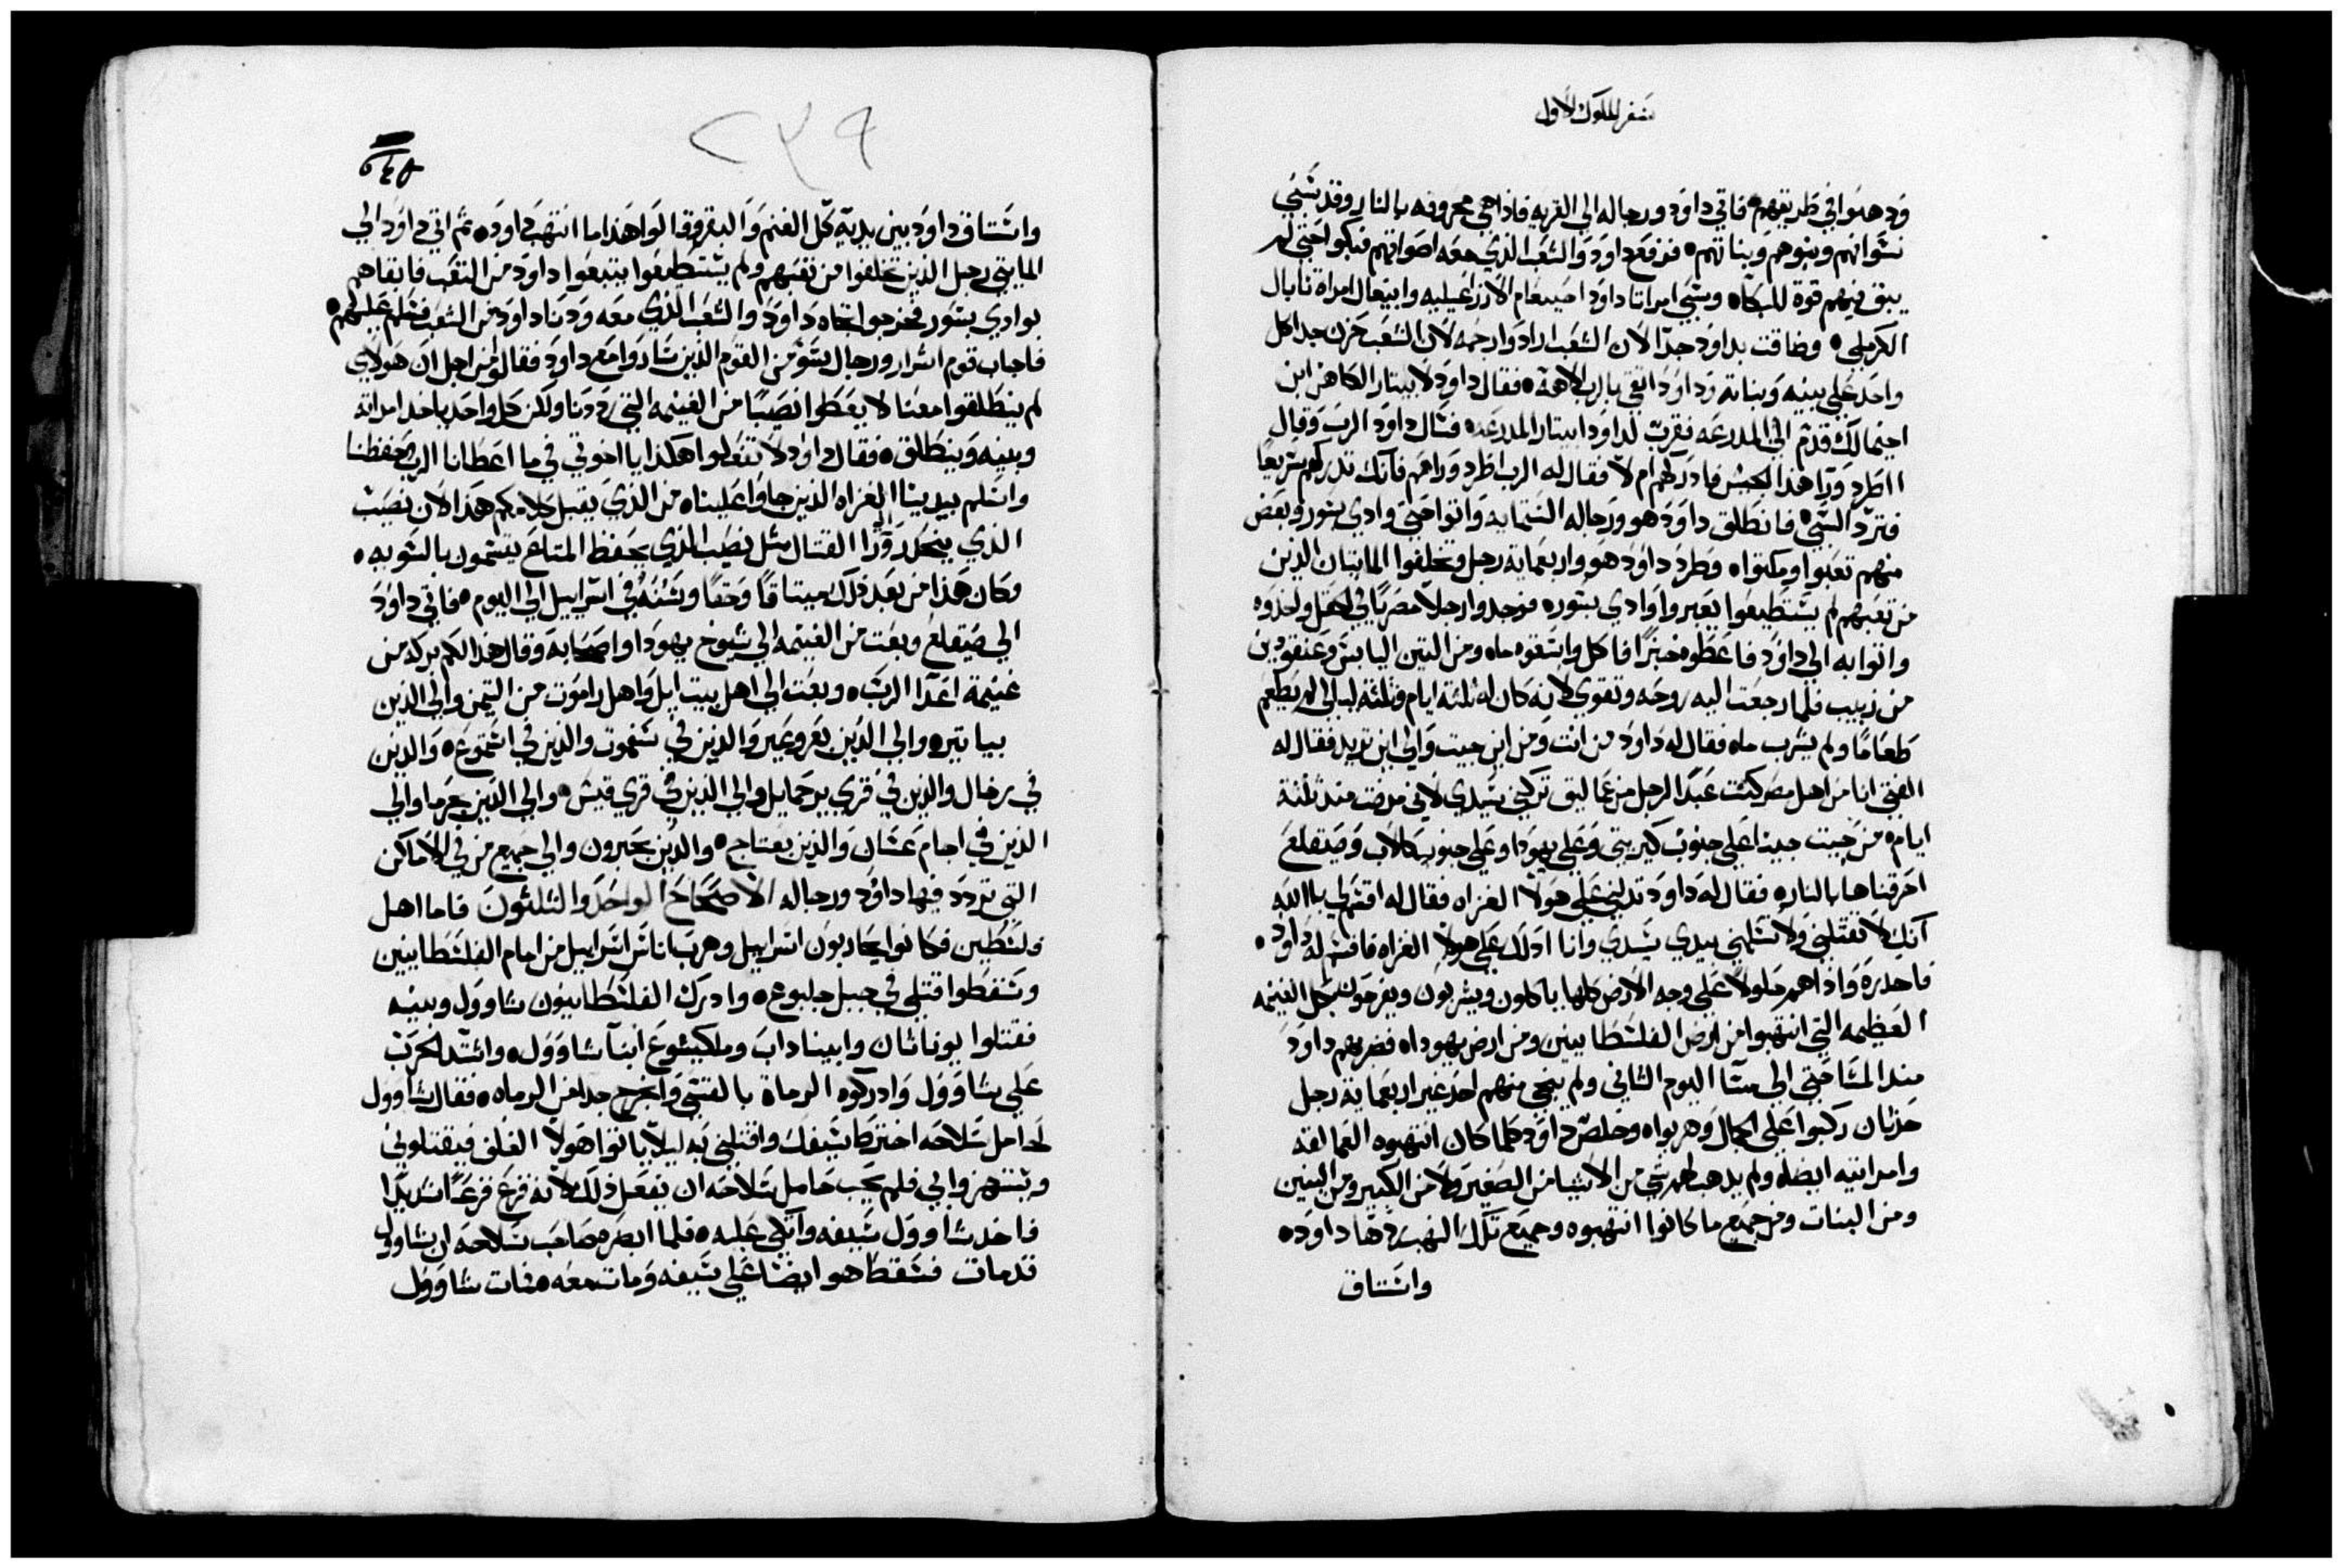 سفر الملوك الاول
وذهبوا في طريقهم فاتي داود ورجاله الي القريه فاذا هي محروقه بالنار وقد سبي
نسوانهم وبنوهم وبناتهم فرفع داود والشعب الذي معه اصواتهم فبكوا حتي لم
يبق فيهم قوة للبكاه وسبي امراتا داود احينعام الازراعيليه وابيغال امراة نابال
الكرملي وضاقت بداود جدا لان الشعب ارادوا رجمه لان الشعب حزن جدا كل
واحد علي بنيه وبناته وداود اتقي بالرب الاهه فقال داود لابيتار الكاهن ابن
اخيمالك قدم الي المدرعه فقرب لداود ابيتار المدرعه فسال داود الرب وقال
ااطرد ورا هذا الجيش فادركهم ام لا فقال له الرب اطرد وراهم فانك تدركهم سريعا
فترد السبي فانطلق داود هو ورجاله الستمايه واتوا حتي وادي بسور وبعض
منهم تعبوا ومكثواه وطرد داود هو واربعمايه رجل وتخلفوا المايتان الذين
من تعبهم لم يستطيعوا يعبروا وادي بسوره فوجدوا رجلا مصريا في الحقل واخذوه
واتوا به الي داود فاعطوه خبزا فاكل واسقوه ماه ومن التين اليابس وعنقودين
من زبيب فلما رجعت اليه روحه وتقوي لانه كان له ثلثة ايام وثلثة ليالي لم يطعم
طعاما ولم يشرب ماه فقال له داود من انت ومن اين جيت والي اين تريد فقال له
الفتي انا من اهل مصر كنت عبدا لرجل من عماليق تركني سيدي لاني مرضت منذ ثلثة
ايام من جيت جينا علي جنوب كيريتي وعلي يهودا وعلي جنوب كالاب وصيقلغ
احرقناها بالناره فقال له داود تدلني علي هولا الغزاه فقال له اقسم لي باالله
انك لا تقتلني ولا تسلمني بيدي سيدي وانا ادلك علي هولا الغزاه فاقسم له داود
فاحدره واذاهم حلولا علي وجه الارض كلها ياكلون ويشربون ويفرحون بكل الغنيمه
العظيمه التي انتهبوا من ارض الفلسطانيين ومن ارض يهوداه فضربهم داود
منذ المسا حتي الي مسآ اليوم الثاني ولم ينجي منهم احد غير اربعماية رجل
حدثان ركبوا علي الجمال وهربواه وخلص داود كلما كان انتهبوه العمالقه
وامراتيه ايضاه ولم يذهب لهم شي من الاشيا من الصغير ولا من الكبير ومن البنين
ومن البنات ومن جميع ما كانوا انتهبوه وجميع تلك النهب ردها داوده
واستاق
٢٣٩
واستاق داود بين يديه كل الغنم والبقر وقالوا هذا ما انتهب داوده ثم اتي داود الي
المايتي رجل الذين تخلفوا من تعبهم ولم يستطيعوا يتبعوا داود من التعب فابقاهم
بوادي بسور فخرجوا تجاه داود والشعب الذي معه ودنا داود من الشعب فسلم عليهم
فاجاب قوم اشرار ورجال سوّ من القوم الذين ساروا مع داود فقالوا من اجل ان هولاي
لم ينطلقوا معنا لا يعطوا نصيبا من الغنيمه التي رددنا ولكن كل واحد ياخذ امراته
وبنيه وينطلق فقال داود لا تفعلوا هكذا يااخوتي في ما اعطانا الرب وحفظنا
واسلم بيدينا الغزاه الذين جاوا عليناه من الذي يقبل كلامكم هذا لان نصيب
الذي ينحدر ورا القتال مثل نصيب الذي يحفظ المتاع يقتسمون بالسويه
وكان هذا من بعد ذلك ميتاقا وحقا وسنه في اسراييل الي اليوم فاتي داود
الي صيقلغ وبعت من الغنيمه الي شيوخ يهودا واصحابه وقال هذا لكم بركه من
غنيمة اعدا الربه وبعت الي اهل بيت ايل واهل راموت من التيمن والي الذين
بياتيره والي الذين بعروعير والذين في سفموت والذين في اشتموع والذين
في برخال والذين في قري يرحمايل والي الذين في قري قينس والي الذين بحرما والي
الذين في اجام عسان والذين بعتاج والذين بحبرون والي جميع من في الاماكن
التي تردد فيها داود ورجاله الاصحاح الواحد والثلثون فاما اهل
فلسطين فكانوا يحاربون اسراييل وهرب اناس اسراييل من امام الفلسطانيين
وسقطوا قتلي في جبل جلبوع وادرك الفلسطانيون شاوول وبنيه
فقتلوا يوناثان وابيناداب وملكيشوع ابنآ شاووله واشتد الحرب
علي شاوول وادركوه الرماة بالقسي وانجرح جدا من الرماه فقال شاوول
لحامل سلاحه اخترط سيفك واقتلني به ليلا ياتوا هولا الغلف فيقتلوني
ويستهزوا بي فلم يحب حامل سلاحه ان يفعل ذلك لانه فزع فزعا شديدا
فاخذ شاوول سيفه واتكي عليه فلما ابصره صاحب سلاحه ان شاوول
قد مات فسقط هو ايضا علي سيفه ومات معه فمات شاوول